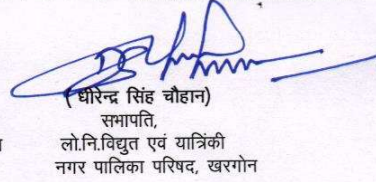 (धीरेन्द्र सिंह चौहान)
सभापति,
लो.नि.विद्युत एवं यात्रिंकी
नगर पालिका परिषद, खरगोन